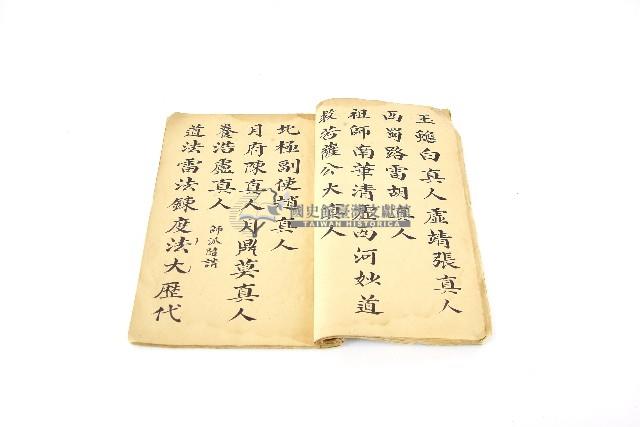 王蟾白真人虛靖張真人
西蜀路雷胡真人
祖師南華清微西河妙道
救苦薩公大真人
北極副使趙真人
月府陳真人月鼎莫真人
養浩盧真人 師派請
道法雷法鍊度法大歷代
國史館臺灣文獻館
TAIWAN HISTORICA